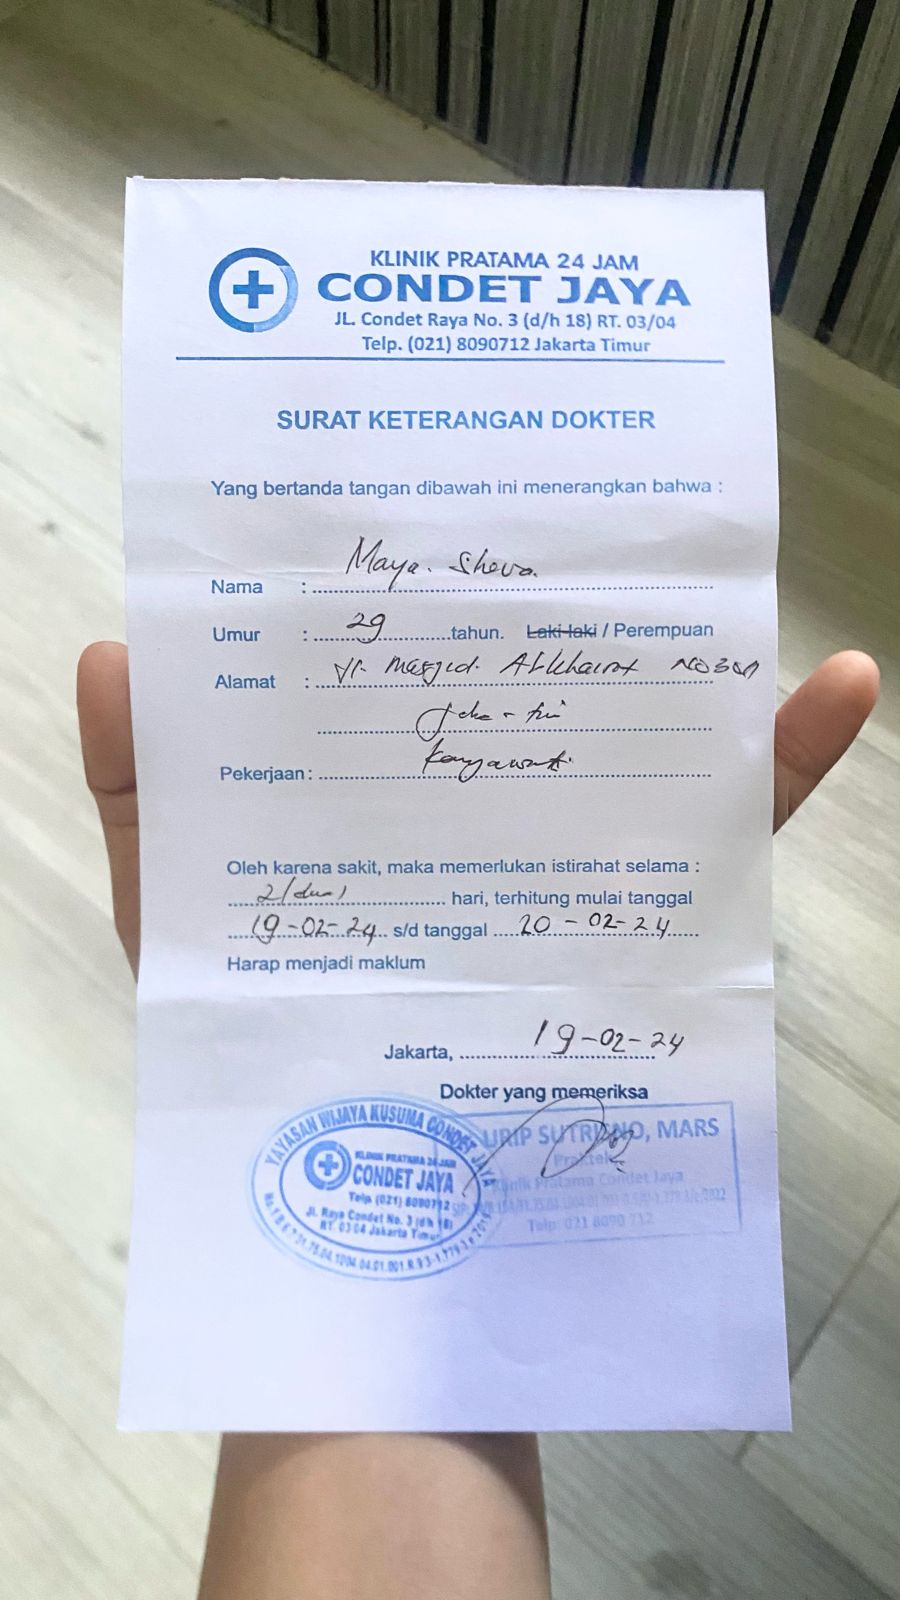 KLINIK PRATAMA 24 JAM
CONDET JAYA
JL. Condet Raya No. 3 (d/h 18) RT. 03/04
Telp. (021) 8090712 Jakarta Timur
SURAT KETERANGAN DOKTER
Yang bertanda tangan dibawah ini menerangkan bahwa :
Nama : Maya Sheva
Umur : 29 tahun. Laki-laki / Perempuan
Alamat : Jl. Masjid Alkhairat
Pekerjaan : Karyawati
Oleh karena sakit, maka memerlukan istirahat selama :
2 (dua) hari, terhitung mulai tanggal
19-02-24 s/d tanggal 20-02-24
Harap menjadi maklum
Jakarta, 19-02-24
Dokter yang memeriksa
YAYASAN WIJAYA KUSUMA CONDET JAYA
KLINIK PRATAMA 24 JAM
CONDET JAYA
Telp. (021) 8090712
Jl. Raya Condet No. 3 (d/h 18)
RT. 03/04 Jakarta Timur
MARS
Praktek
Klinik Pratama Condet Jaya
Telp. 021 8090 712